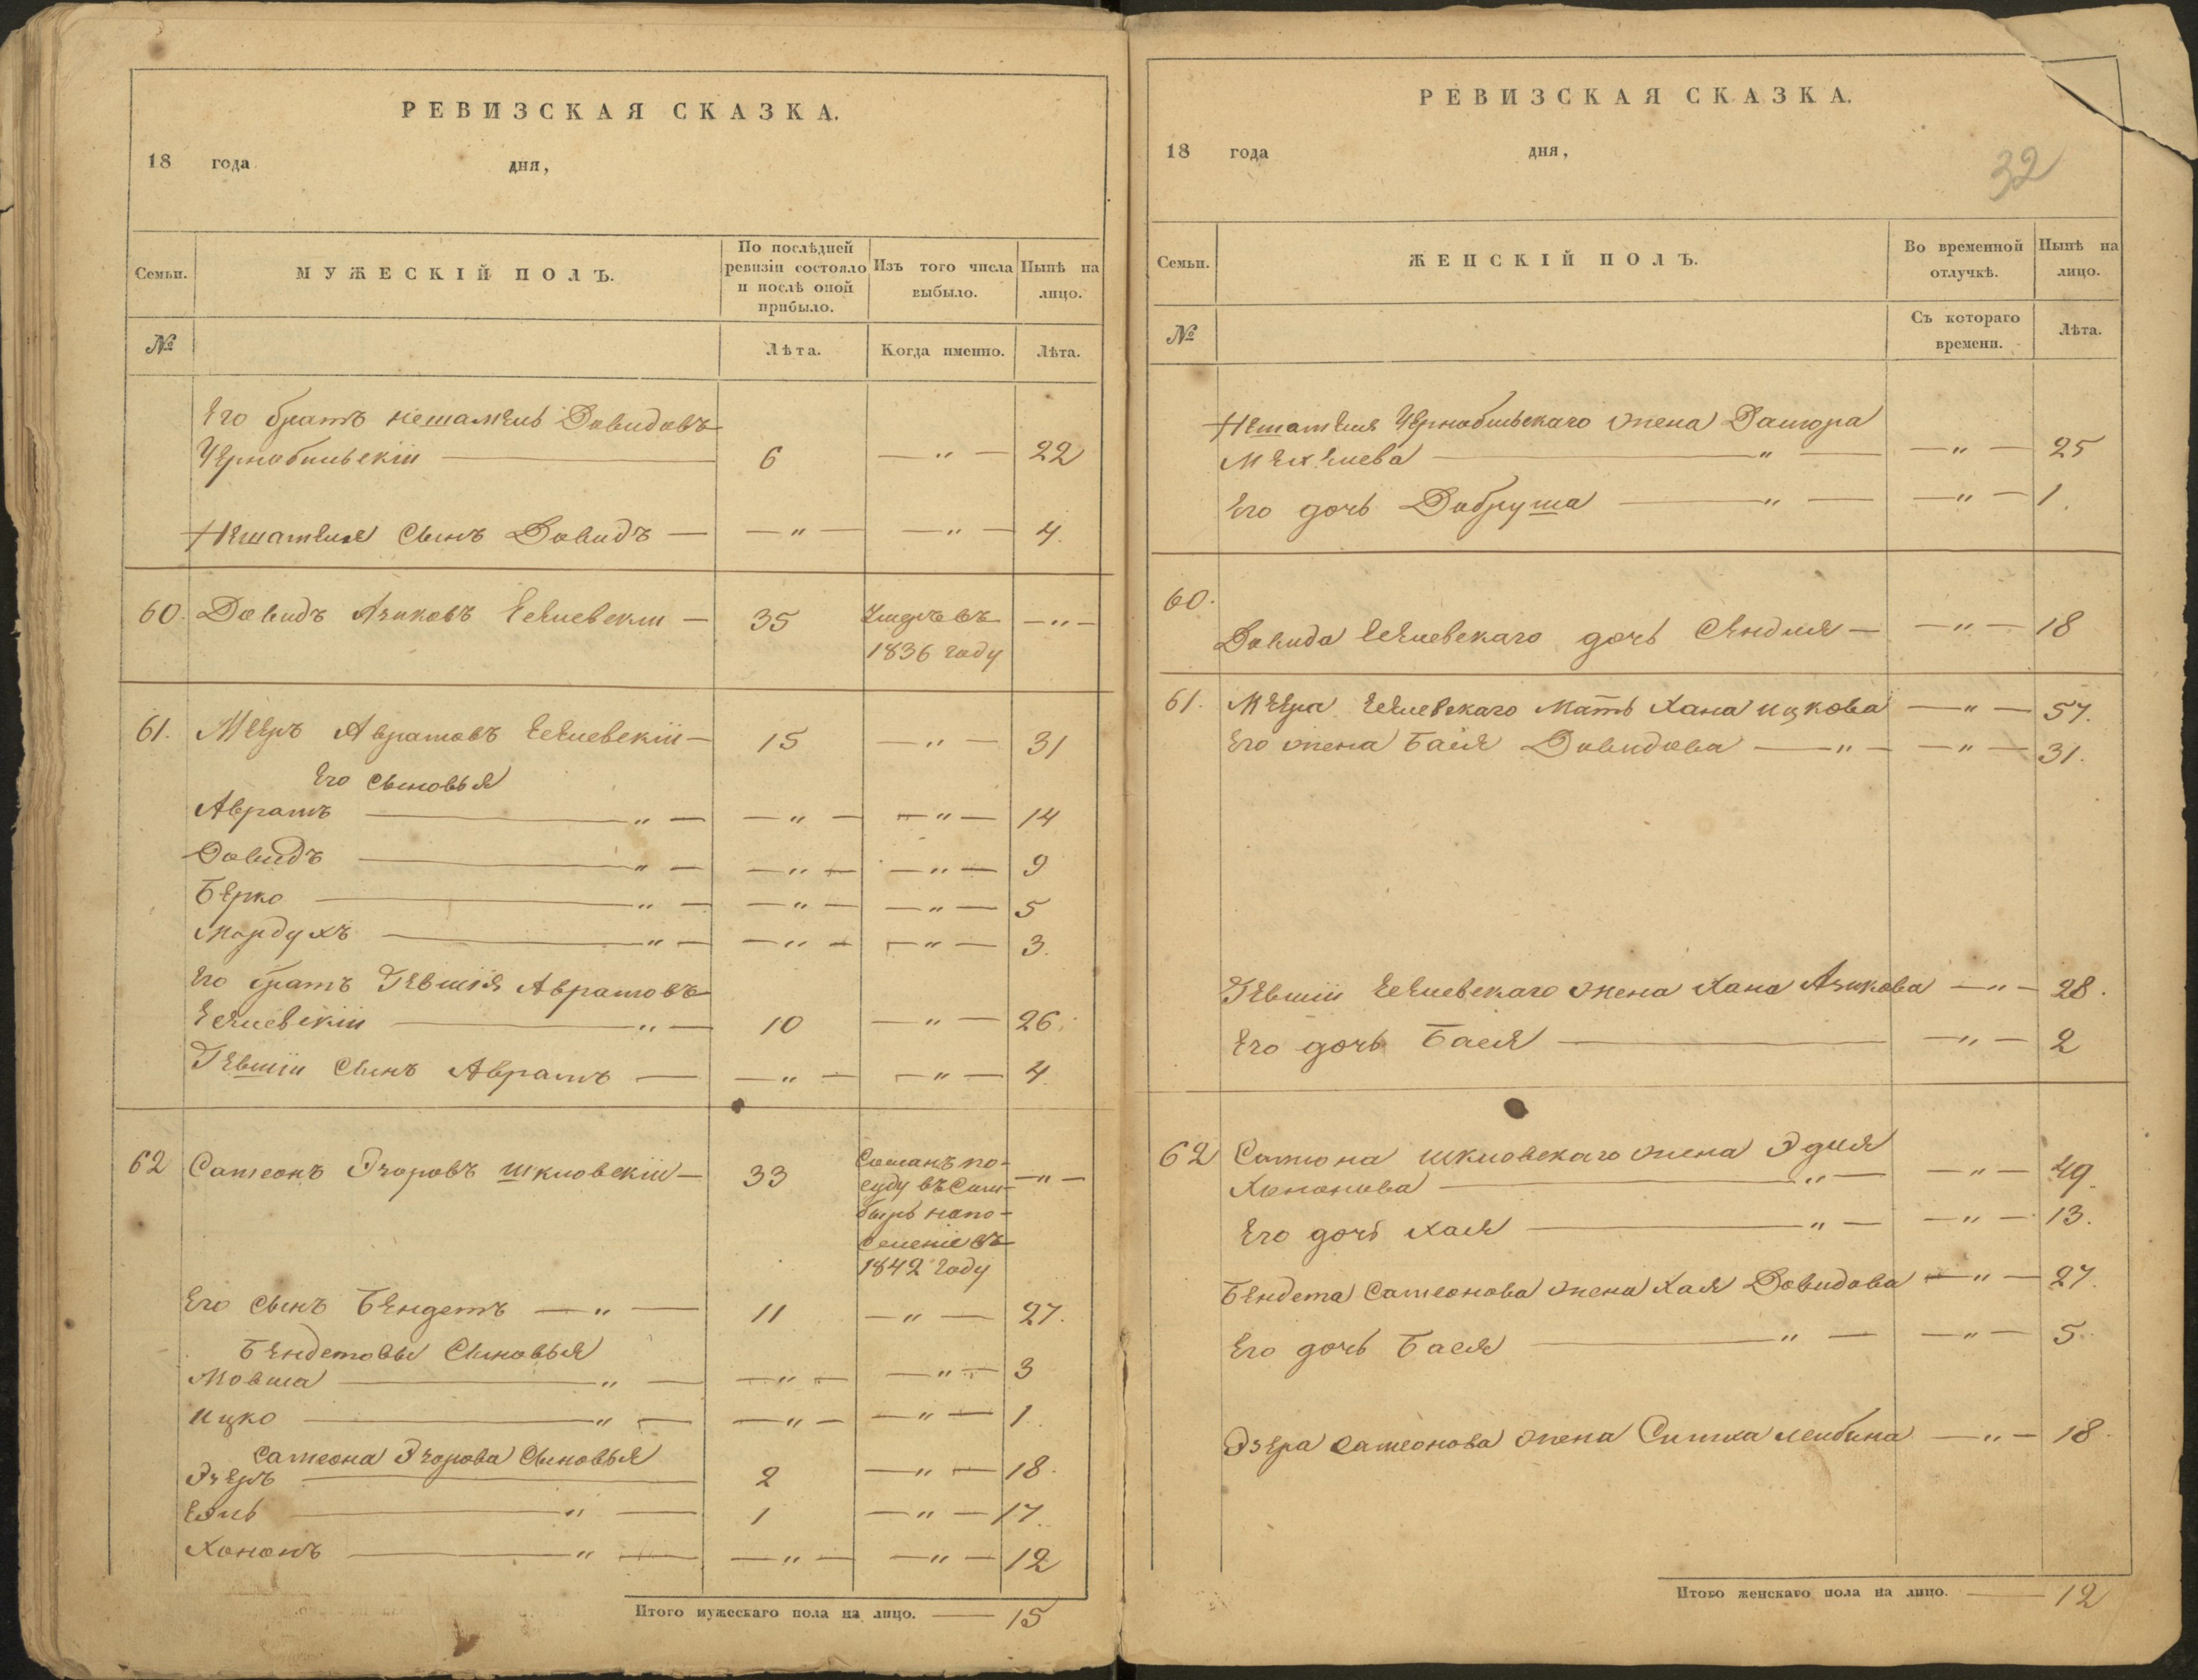 РЕВИЗСКАЯ СКАЗКА.
18 года дня,
Семьи.
МУЖЕСКІЙ ПОЛЪ.
По послѣдней ревизіи состояло и послѣ оной прибыло.
Изъ того числа выбыло.
Нынѣ на лицо.
№
Лѣта.
Когда именно.
Лѣта.
Его братъ Нешамель Довидовъ
Чернобыльскій — 6 — „ — 22
Нешамеля сынъ Довидъ — — „ — — „ — 4.
60. Довидъ Азиковъ — 35 Умеръ въ — „ —
1836 году
61. Мееръ Аврамовъ — 15 — „ — 31
Его сыновья
Аврамъ — „ — — „ — — „ — 14
Довидъ — „ — — „ — — „ — 9
Берко — „ — — „ — — „ — 5
Мордухъ — „ — — „ — — „ — 3.
Его братъ Гевшія Аврамовъ
— „ — 10 — „ — 26.
Гевшіи сынъ Аврамъ — — „ — — „ — 4.
62 Самсонъ Шкловскій — 33 Сосланъ по — „ —
суду въ Сим-
бирь на по-
селеніе въ
1842 году
Его сынъ Бендетъ — „ — 11 — „ — 27.
Бендетовы сыновья
Мовша — „ — — „ — — „ — 3
Ицко — „ — — „ — — „ — 1.
Самсона сыновья
Эзеръ — 2 — „ — 18.
— „ — 1 — „ — 17.
Хононъ — „ — — „ — — „ — 12
Итого мужескаго пола на лицо. — 15
РЕВИЗСКАЯ СКАЗКА.
18 года дня,
32
Семьи.
ЖЕНСКІЙ ПОЛЪ.
Во временной отлучкѣ.
Нынѣ на лицо.
№
Съ котораго времени.
Лѣта.
Нешамеля Чернобыльскаго жена
— „ — — „ — 25
Его дочь Добруша — „ — — „ — 1.
60.
Довида дочь — — „ — 18
61. Меера мать Хана Ицкова — „ — 57.
Его жена Бася Довидова — „ — — „ — 31.
Гевшіи жена Хана Азикова — „ — 28.
Его дочь Бася — — „ — 2
62 Самсона Шкловскаго жена
Хононова — „ — — „ — 49.
Его дочь Хая — „ — — „ — 13.
Бендета Самсонова жена Хая Довидова — „ — 27.
Его дочь Бася — „ — — „ — 5.
Эзера Самсонова жена Лейбина — „ — 18.
Итого женскаго пола на лицо. — 12